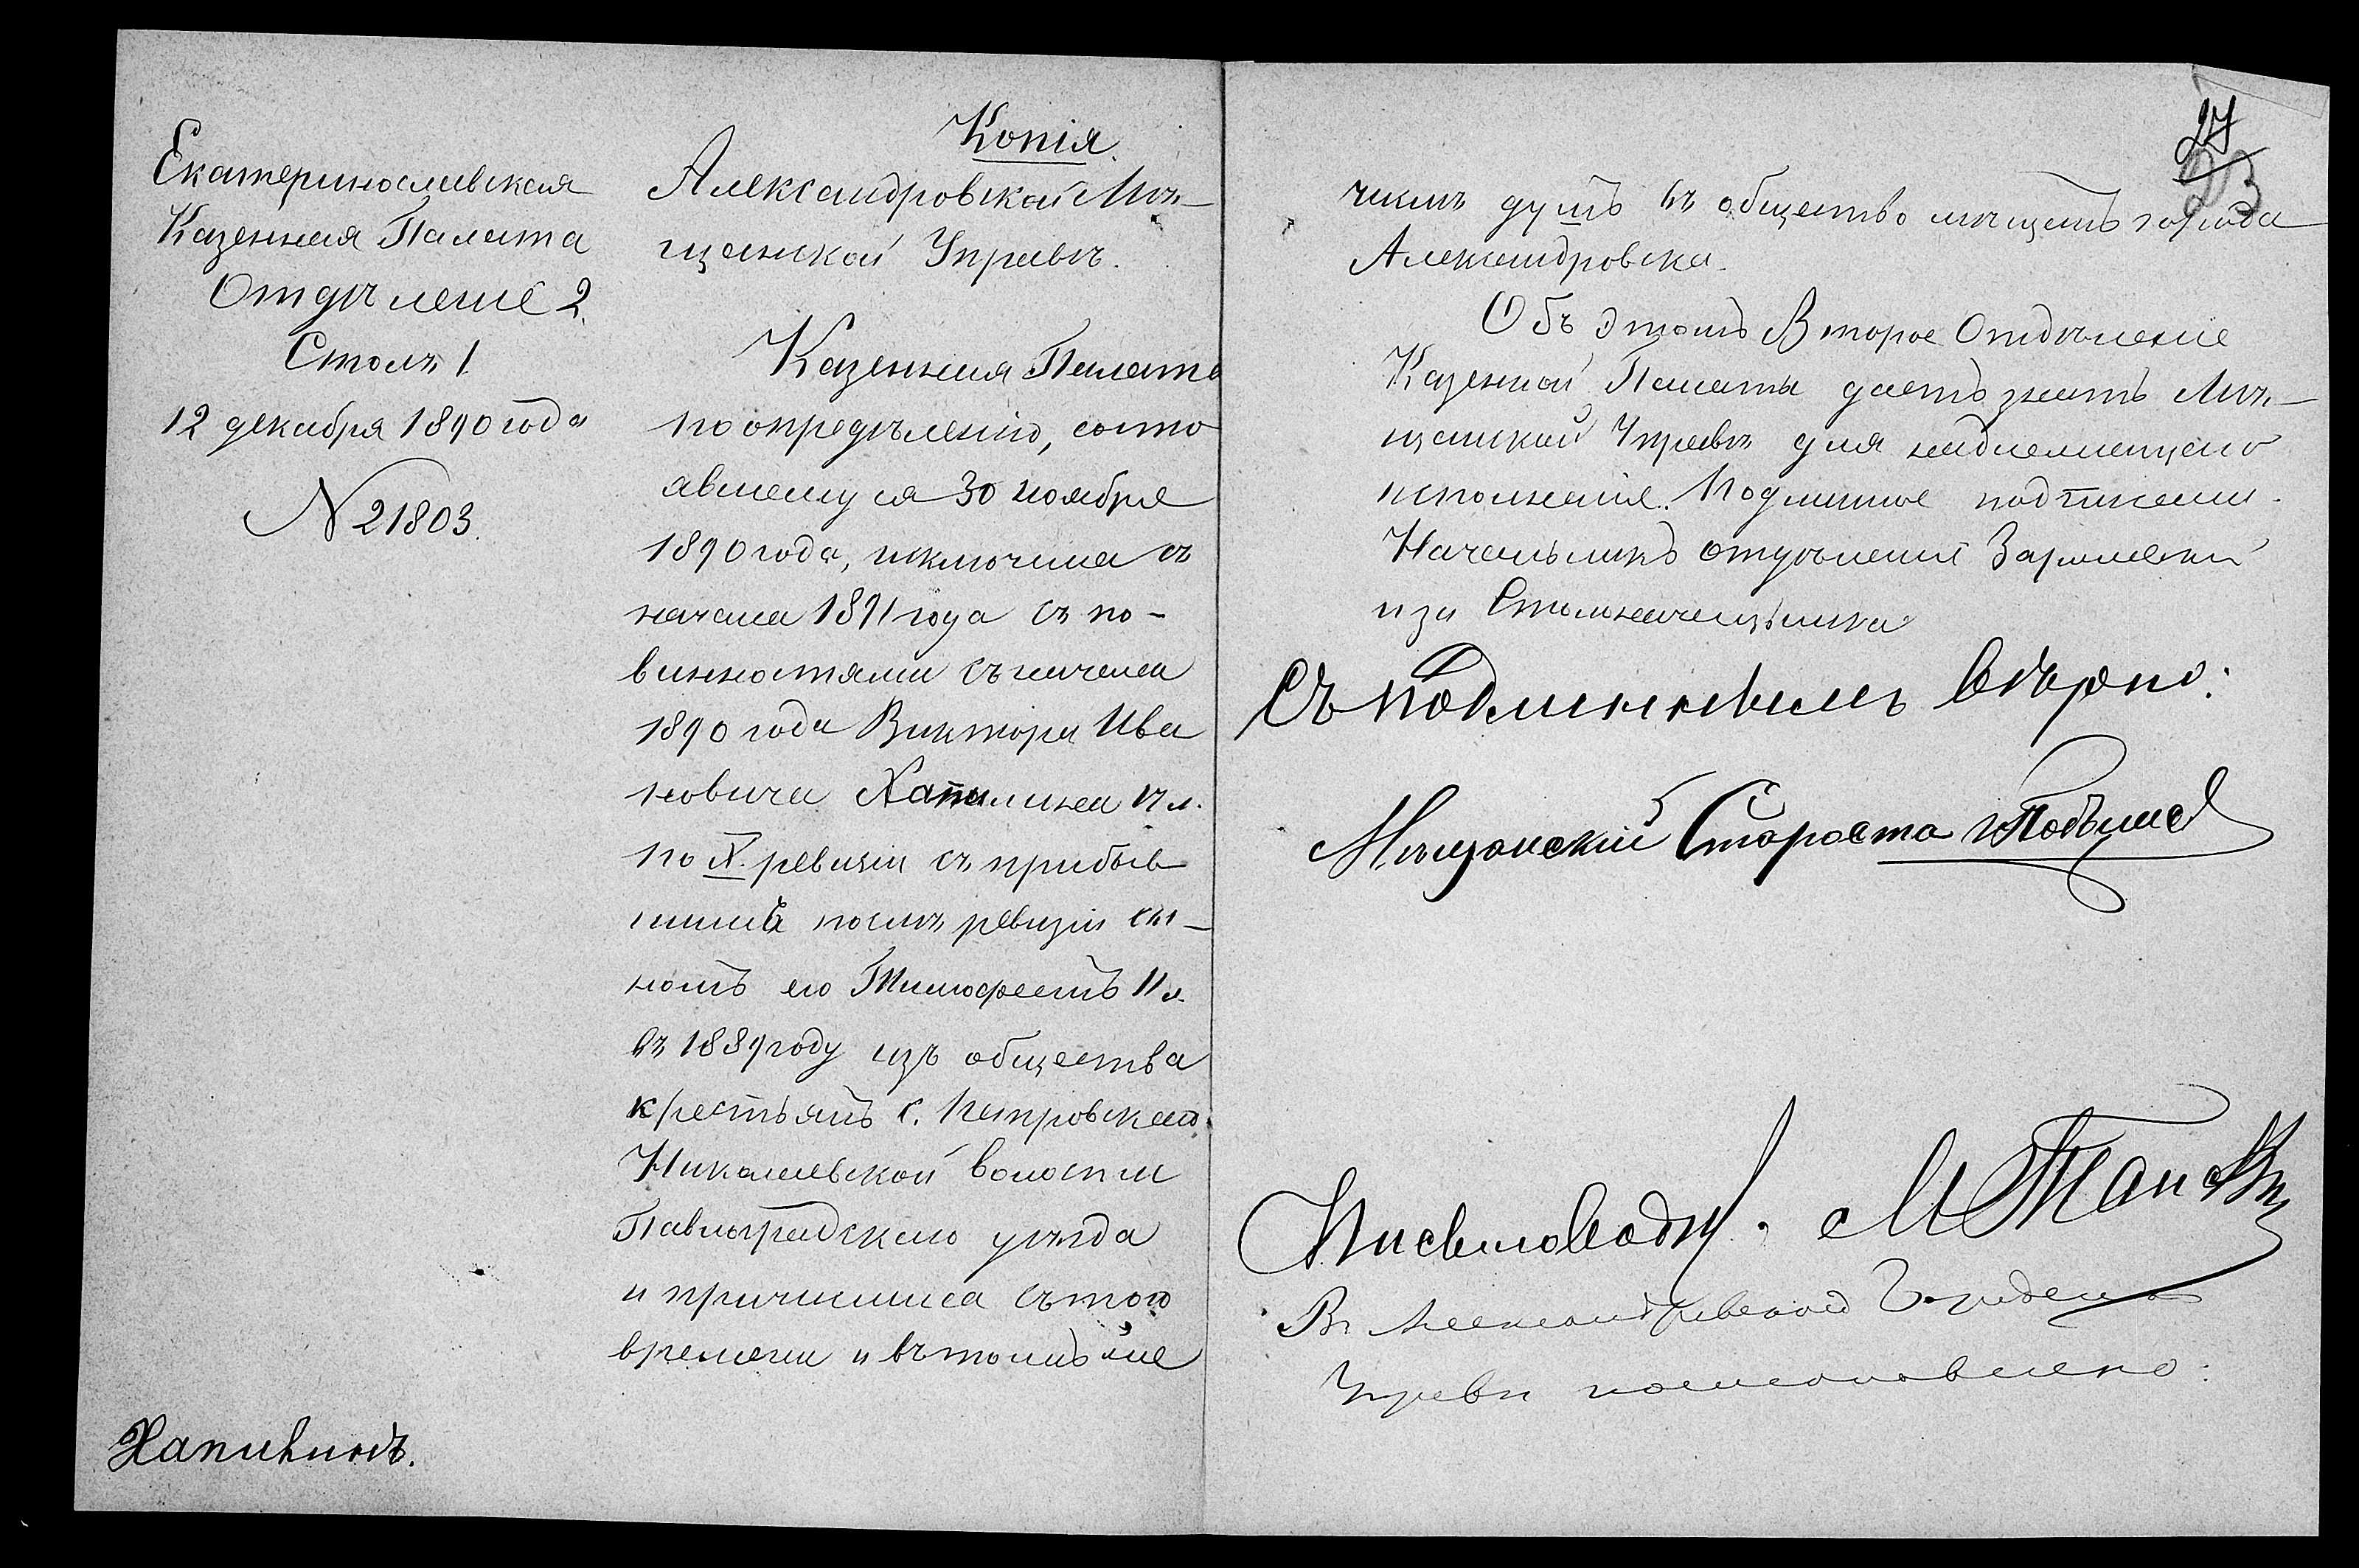 Копія
Екатеринославская
Казенная Палата
Отдѣленіе 2.
Столъ 1
12 декабря 1890 года
N 21803.
Александровской Мѣ-
щанской Управѣ.
Казенная Палата
по опредѣленію, состо
явшемуся 30 ноября
1890 года, исключила съ
начала 1891 года съ по-
винностями съ начала
1890 года Виктора Ива
новича Хапилина 17 л.
по X. ревизіи съ прибыв
шимъ послѣ ревизіи сы-
номъ его Тимофеемъ 11 л.
въ 1889 году изъ общества
крестьянъ с. Петровскаго
Николаевской волости
Павлоградскаго уѣзда
и причислила съ того
времени и въ томъ же
Хапилинъ.
27
23
числѣ душъ въ общество мѣщанъ города
Александровска.
Объ этомъ Второе Отдѣленіе
Казенной Палаты даетъ знать Мѣ-
щанской Управѣ для надлежащаго
исполненія. Подлинное подписали
Начальникъ отдѣленія
и за Столоначальника
Съ подлиннымъ вѣрно:
Мѣщанскій Староста
Письмоводит.
Въ Александровской Городской
Управѣ постановлено: